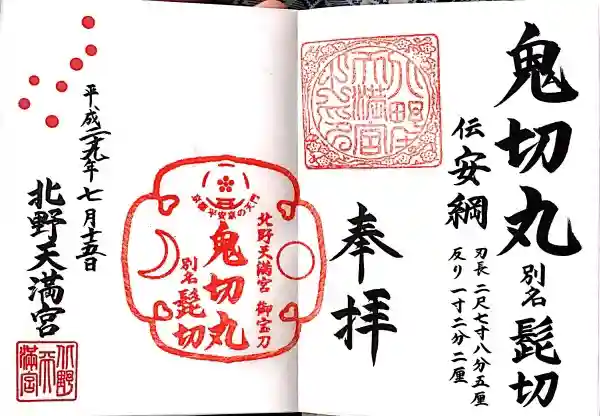 鬼切丸 別名 髭切
伝 安綱
刃長 二尺七寸八分五厘
反り 一寸二分二厘
奉拝
北野天満宮 御宝刀
鬼切丸
別名 髭切
平成二十九年七月十五日
北野天満宮
北野天満宮